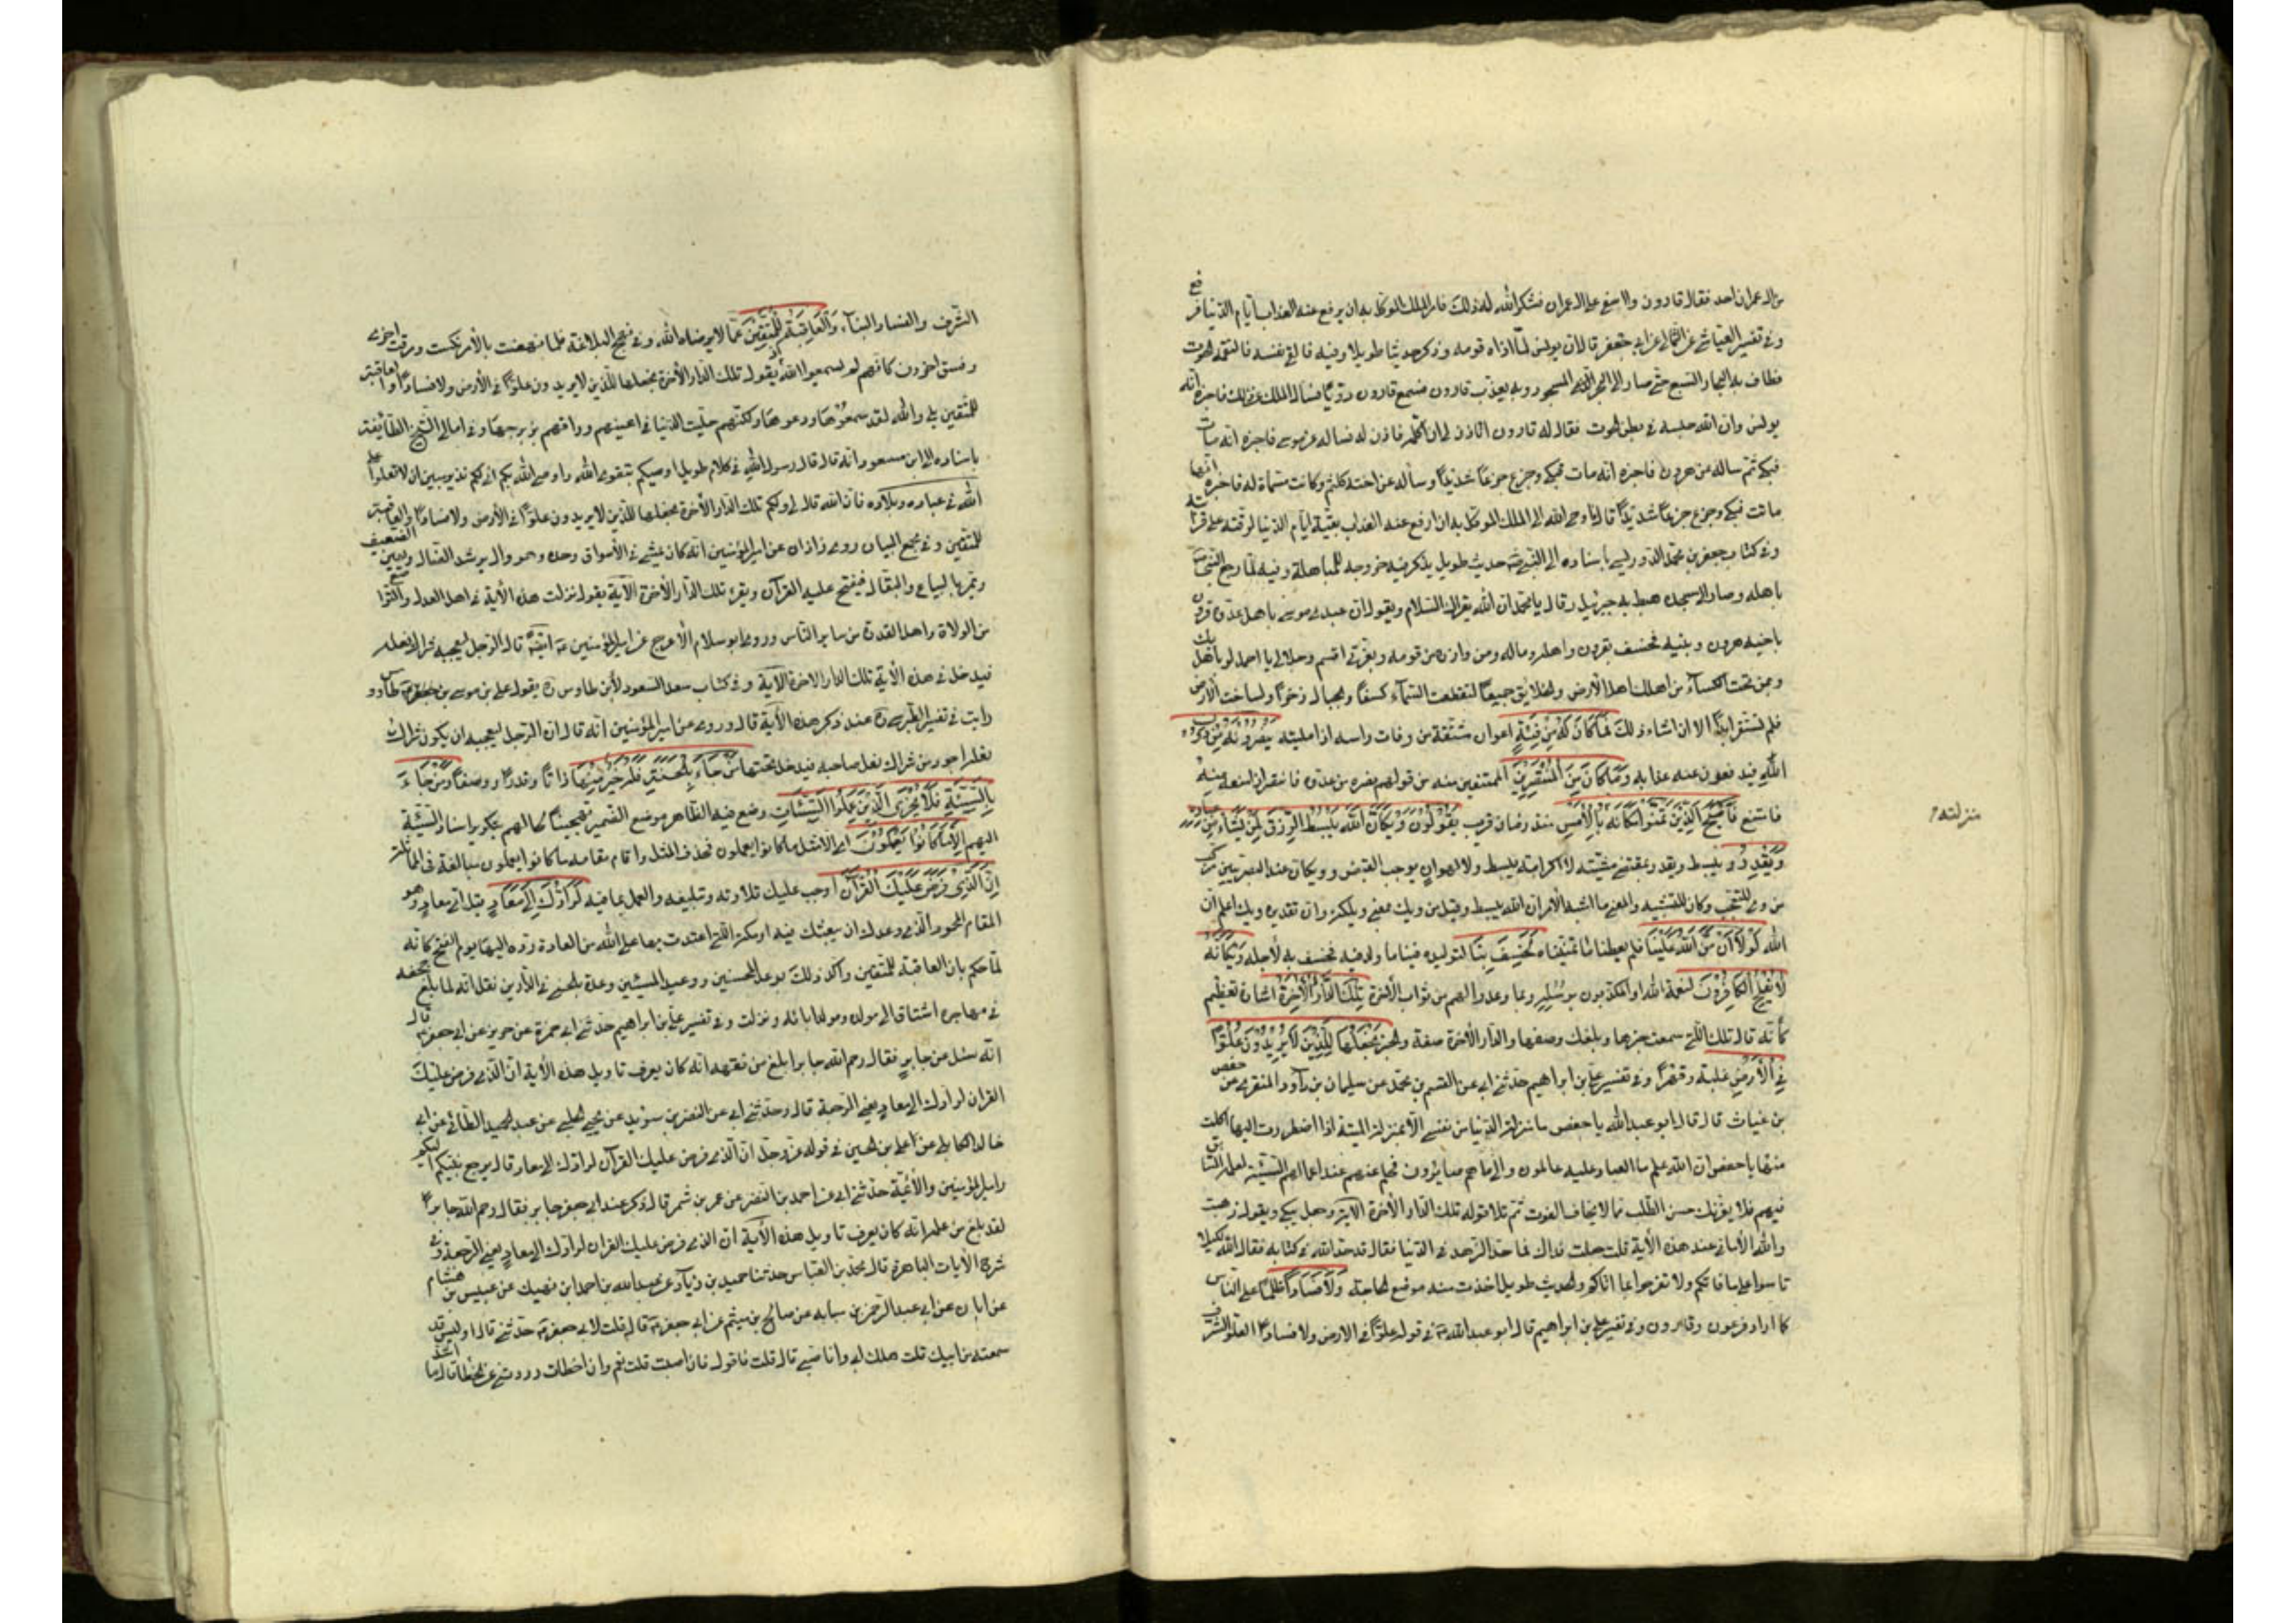 من ال عمران احد فقال قارون وا اسفى على ال عمران فشكر الله له ذلك فامر الملك الموكل به ان يرفع عنه العذاب ايام الدنيا فرفع
وفي تفسير العياشي عن الثمالي عن ابي جعفر قال ان يونس لما اذاه قومه وذكر حديثا طويلا وفيه فالقى نفسه فالتقمه الحوت
فطاف به البحار السبع حتى صار الى البحر المسجور وبه يعذب قارون فسمع قارون دويا فسال الملك عن ذلك فاخبره انه
يونس وان الله حبسه في بطن الحوت فقال له قارون اتاذن لي ان اكلمه فاذن له فساله عن موسى فاخبره انه مات
فبكى ثم ساله عن هرون فاخبره انه مات فبكى وجزع جزعا شديدا وساله عن اخته كلثم وكانت مسماة له فاخبره انها
ماتت فبكى وجزع جزعا شديدا قال فاوحى الله الى الملك الموكل به ان ارفع عنه العذاب بقية ايام الدنيا لرقته على قرابته
وفي كتاب جعفر بن محمد الدوريستي باسناده الى النبي حديث طويل يذكر فيه خروجه للمباهلة وفيه فلما رجع النبي
باهله وصار الى مسجده هبط به جبرئيل وقال يا محمد ان الله يقرئك السلام ويقول ان عبدي موسى باهل عدوه قرون
باخيه هرون وبنيه فخسف بقرون واهله وماله ومن وازره من قومه وبعزتي اقسم وجلالي يا احمد لو باهل بك
وبمن تحت الكساء من اهلك اهل الارض والخلايق جميعا لتقطعت السماء كسفا والجبال زخرا ولساخت الارض
فلم تستقر ابدا الا ان اشاء ذلك فَمَا كَانَ لَهُ مِنْ فِئَةٍ اعوان مشتقة من وفات راسه اذا ميلته يَنْصُرُونَهُ مِنْ دُونِ
اللّهِ فيدفعون عنه عذابه وَمَا كَانَ مِنَ الْمُنْتَصِرِينَ الممتنعين منه من قولهم نصره من عدوه فانتصر اذا منعه منه
فامتنع فَاَصْبَحَ الَّذِينَ تَمَنَّوْا مَكَانَهُ بِالْاَمْسِ منذ زمان قريب يَقُولُونَ وَيْكَاَنَّ اللهَ يَبْسُطُ الرِّزْقَ لِمَنْ يَشَاءُ مِنْ عِبَادِهِ
وَيَقْدِرُ يبسط ويقدر بمقتضى مشيته لا لكرامته يبسط ولا لهوان يوجب القبض وويكان عند البصريين مركب
من وي للتعجب وكان للتشبيه والمعنى ما اشبه الامر ان الله يبسط وقيل من ويك بمعنى ويلك وان تقديره ويك اعلم ان
الله لَوْلَا اَنْ مَنَّ اللهُ عَلَيْنَا فلم يعطنا ما تمنيناه لَخَسَفَ بِنَا لتوليده فينا ما ولد فيه فخسف به لاجله وَيْكَاَنَّهُ
لَا يُفْلِحُ الْكَافِرُونَ لنعمة الله او المكذبون برسله وبما وعدوا لهم من ثواب الاخرة تِلْكَ الدَّارُ الْاخِرَةُ اشارة تعظيم
كانه قال تلك التي سمعت خبرها وبلغك وصفها والدار الاخرة صفة والخبر نَجْعَلُهَا لِلَّذِينَ لَا يُرِيدُونَ عُلُوًّا
فِي الْاَرْضِ غلبة وقهرا وفي تفسير علي بن ابراهيم حدثني ابي عن القسم بن محمد عن سليمان بن داود المنقري عن حفص
بن غياث قال قال ابو عبد الله يا حفص ما منزلة الدنيا من نفسي الا بمنزلة الميتة اذا اضطررت اليها اكلت
منها يا حفص ان الله علم ما العباد عليه عاملون والى ما هم صائرون فحلم عنهم عند اعمالهم السيئة لعلمه السابق
فيهم فلا يغرنك حسن الطلب ممن لا يخاف الفوت ثم تلا قوله تلك الدار الاخرة الاية وجعل يبكي ويقول ذهبت
والله الاماني عند هذه الاية قلت جعلت فداك فما حد الزهد في الدنيا فقال قد حد الله في كتابه فقال الله لكيلا
تاسوا على ما فاتكم ولا تفرحوا بما اتاكم والحديث طويل اخذت منه موضع الحاجة وَلَا فَسَادًا ظلما على الناس
كما اراد فرعون وقارون وفي تفسير علي بن ابراهيم قال ابو عبد الله في قوله علوا في الارض ولا فسادا العلو الشرف
منزلته
الشرف والفساد البناء وَالْعَاقِبَةُ لِلْمُتَّقِينَ عما لا يرضاه الله وفي نهج البلاغة فلما نهضت بالامر نكثت ومرقت اخرى
وفسق اخرون كانهم لم يسمعوا الله يقول تلك الدار الاخرة نجعلها للذين لا يريدون علوا في الارض ولا فسادا والعاقبة
للمتقين بلى والله لقد سمعوها ووعوها ولكنهم حليت الدنيا في اعينهم وراقهم زبرجها وفي امالي الشيخ الطائفة
باسناده الى ابن مسعود انه قال قال رسول الله في كلام طويل اوصيكم بتقوى الله واوصي الله بكم اني لكم نذير مبين ان لا تعلوا على
الله في عباده وبلاده فان الله قال لي ولكم تلك الدار الاخرة نجعلها للذين لا يريدون علوا في الارض ولا فسادا والعاقبة
للمتقين وفي مجمع البيان روى زاذان عن امير المؤمنين انه كان يمشي في الاسواق وحده وهو وال يرشد الضال ويعين الضعيف
ويمر بالبياع والبقال فيفتح عليه القران ويقرء تلك الدار الاخرة الاية يقول نزلت هذه الاية في اهل العدل والتواضع
من الولاة واهل القدرة من ساير الناس وروى ابو سلام الاعرج عن امير المؤمنين ايضا قال الرجل ليعجبه شراك نعله
فيدخل في هذه الاية تلك الدار الاخرة الاية وفي كتاب سعد السعود لابن طاوس ره يقول علي بن موسى بن جعفر بن طاوس
رايت في تفسير الطبرسي ره عند ذكر هذه الاية قال وروى عن امير المؤمنين انه قال ان الرجل ليعجبه ان يكون شراك
نعله اجود من شراك نعل صاحبه فيدخل تحتها مَنْ جَاءَ بِالْحَسَنَةِ فَلَهُ خَيْرٌ مِنْهَا ذاتا وقدرا ووصفا وَمَنْ جَاءَ
بِالسَّيِّئَةِ فَلَا يُجْزَى الَّذِينَ عَمِلُوا السَّيِّئَاتِ وضع فيه الظاهر موضع الضمير تهجينا لحالهم بتكرير اسناد السيئة
اليهم اِلَّا مَا كَانُوا يَعْمَلُونَ اي الا مثل ما كانوا يعملون فحذف المثل واقام مقامه ما كانوا يعملون مبالغة في المماثلة
اِنَّ الَّذِي فَرَضَ عَلَيْكَ الْقُرْآنَ اوجب عليك تلاوته وتبليغه والعمل بما فيه لَرَادُّكَ اِلَى مَعَادٍ قيل اي معاد وهو
المقام المحمود الذي وعدك ان يبعثك فيه او مكة التي اعتدت بها على الله من العادة رده اليها يوم الفتح كانه
لما حكم بان العاقبة للمتقين واكد ذلك بوعد المحسنين ووعيد المسيئين وعده بالحسنى في الدارين نقل انه لما بلغ جحفة
في مهاجره اشتاق الى مولده ومولد ابائه ونزلت وفي تفسير علي بن ابراهيم حدثني ابي حمزة عن حريز عن ابي جعفر قال
انه سئل عن جابر فقال رحم الله جابرا بلغ من فقهه انه كان يعرف تاويل هذه الاية ان الذي فرض عليك
القران لرادك الى معاد يعني الرجعة قال وحدثني ابي عن النضر بن سويد عن يحيى الحلبي عن عبد الحميد الطائي عن ابي
خالد الكابلي عن علي بن الحسين في قوله عز وجل ان الذي فرض عليك القران لرادك الى معاد قال يرجع اليكم نبيكم
وامير المؤمنين والائمة حدثني ابي عن احمد بن النضر عن عمر بن شمر قال ذكر عند ابي جعفر جابر فقال رحم الله جابرا
لقد بلغ من علمه انه كان يعرف تاويل هذه الاية ان الذي فرض عليك القران لرادك الى معاد يعني الرجعة وفي
شرح الايات الباهرة قال محمد بن العباس حدثنا حميد بن زياد عن عبد الله بن احمد ابن نهيك عن عبيس بن هشام
عن ابان عن ابي عبد الرحمن بن سيابه عن صالح بن ميثم عن ابي جعفر قال قلت لابي جعفر حدثني قال او ليس قد
سمعته من ابيك قلت هلك ابي وانا صبي قال قلت فاقول فان اصبت قلت نعم وان اخطات رددتني عن الخطا قال ما اشد